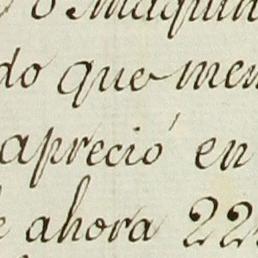 o Maquin
do que men
apreció en
e ahora 22